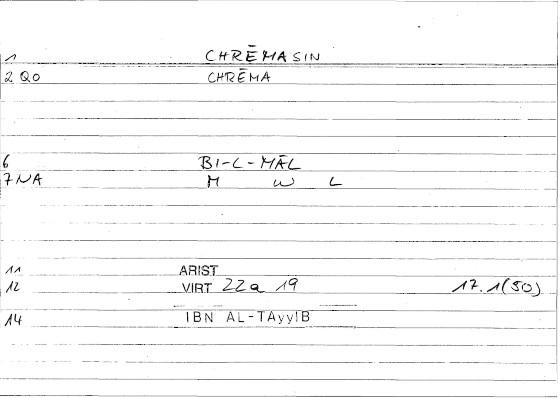 1 CHRĒMASIN
2 QO CHRĒMA
6 BI-L-MĀL
7 NA M W L
11 ARIST
12 VIRT 22a 19 17.1(50)
14 IBN AL-TAyyIB